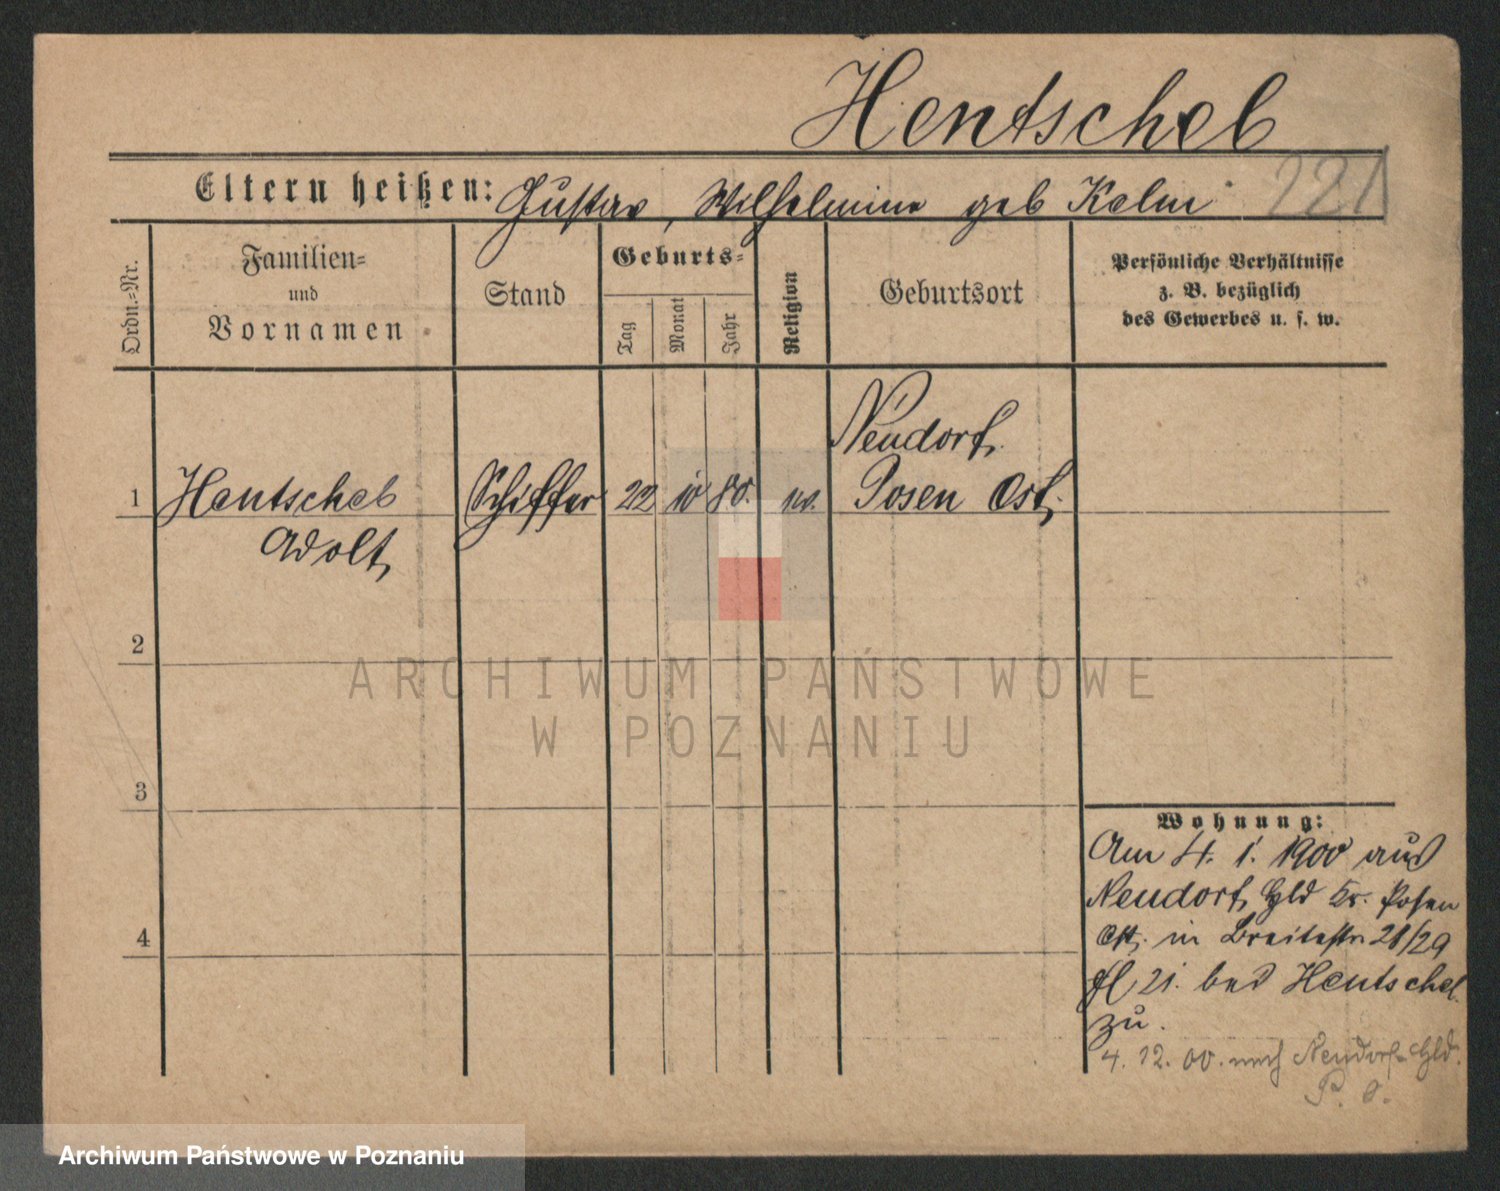 Hentschel
Eltern heißen: Gustav, Wilhelmine geb Kelm
221
Ordn.-Nr.
Familien-
und
Vornamen
Stand
Geburts-
Tag
Monat
Jahr
Religion
Geburtsort
Persönliche Verhältnisse
z. B. bezüglich
des Gewerbes u. s. w.
1
Hentschel
Adolf
Schiffer
22
10
80.
ev.
Neudorf
Posen Ost.
2
3
4
Wohnung:
Am 4. 1. 1900 aus
Neudorf Hld Kr. Posen
Ost. in Breitestr 28/29
21. bei Hentschel
zu.
4. 12. 00. nach Neudorf Hld.
P. O.
ARCHIWUM PAŃSTWOWE
W POZNANIU
Archiwum Państwowe w Poznaniu